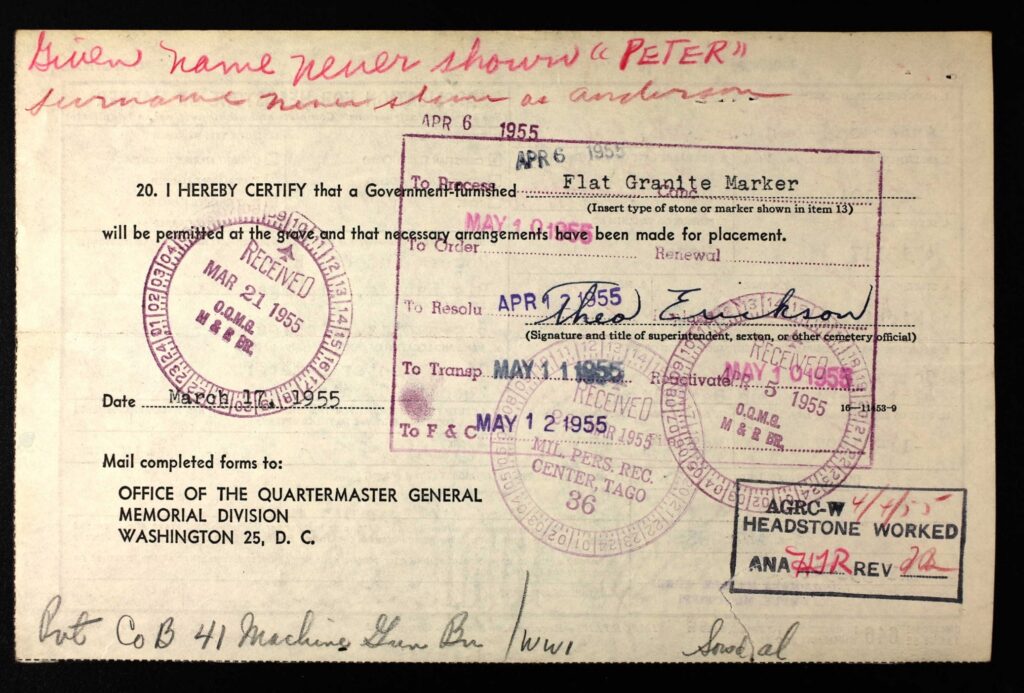 Given name never shown "PETER"
surname never shown as anderson
APR 6 1955
APR 6 1955
To Process
Canc
20. I HEREBY CERTIFY that a Government-furnished Flat Granite Marker
(Insert type of stone or marker shown in item 13)
MAY 10 1955
will be permitted at the grave and that necessary arrangements have been made for placement.
To Order
Renewal
RECEIVED
MAR 21 1955
O.Q.M.G.
M & R BR.
To Resolu APR 12 1955
Theo Erickson
(Signature and title of superintendent, sexton, or other cemetery official)
To Transp MAY 11 1955
Reactivate MAY 10 1955
RECEIVED
5 1955
O.Q.M.G.
M & R BR.
Date March 17, 1955
16-11453-9
To F & C MAY 12 1955
RECEIVED
MAR 1955
MIL. PERS. REC.
CENTER, TAGO
36
Mail completed forms to:
OFFICE OF THE QUARTERMASTER GENERAL
MEMORIAL DIVISION
WASHINGTON 25, D. C.
AGRC-W 4/4/55
HEADSTONE WORKED
ANA HJR REV
Pvt Co B 41 Machine Gun Bn / WW1